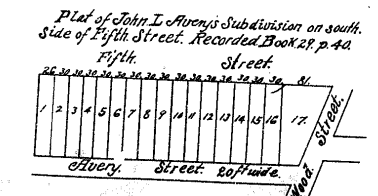 Plat of John L Avery's Subdivision on south.
Side of Fifth Street. Recorded Book 29. p. 40.
Fifth. Street.
26 30 30 30 30 30 30 30 30 30 30 30 30 30 30 30 81.
1 2 3 4 5 6 7 8 9 10 11 12 13 14 15 16 17.
Street.
Avery. Street. 20ft wide.
Wood.